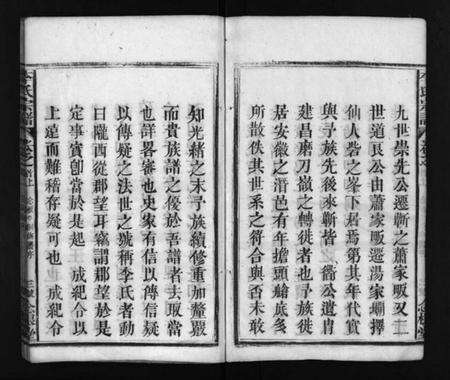 九世崇先公遷蘄之蕭家畈又一
世道良公由蕭家畈遷湯家壪擇
仙人砦之峯下居焉第其年代實
與予族先後來蘄皆 公遺肖
建昌磨刀墩之轉徙者也予族徙
居安徽之潛邑有年擔頭艙底多
所散佚其世系之符合與否未敢
知光緒之末予族續修重加釐嚴
而貴族譜之優於吾譜者去取當
也詳畧審也史家有信以傳信疑
以傳疑之法世之號稱李氏者動
曰隴西從郡望耳竊謂郡望於是
定事實卽當於是起 戒紀今以
上遠而難稽存疑可也 戒紀今
李氏宗譜